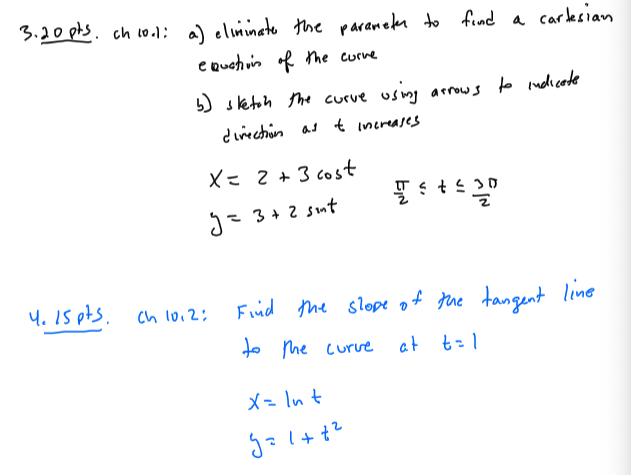 3. 20 pts. ch 10.1: a) eliminate the parameter to find a cartesian
equation of the curve
b) sketch the curve using arrows to indicate
direction as t increases
x = 2 + 3 cost
y = 3 + 2 sint
π/2 ≤ t ≤ 3π/2
4. 15 pts. ch 10.2: Find the slope of the tangent line
to the curve at t=1
x = ln t
y = 1 + t²